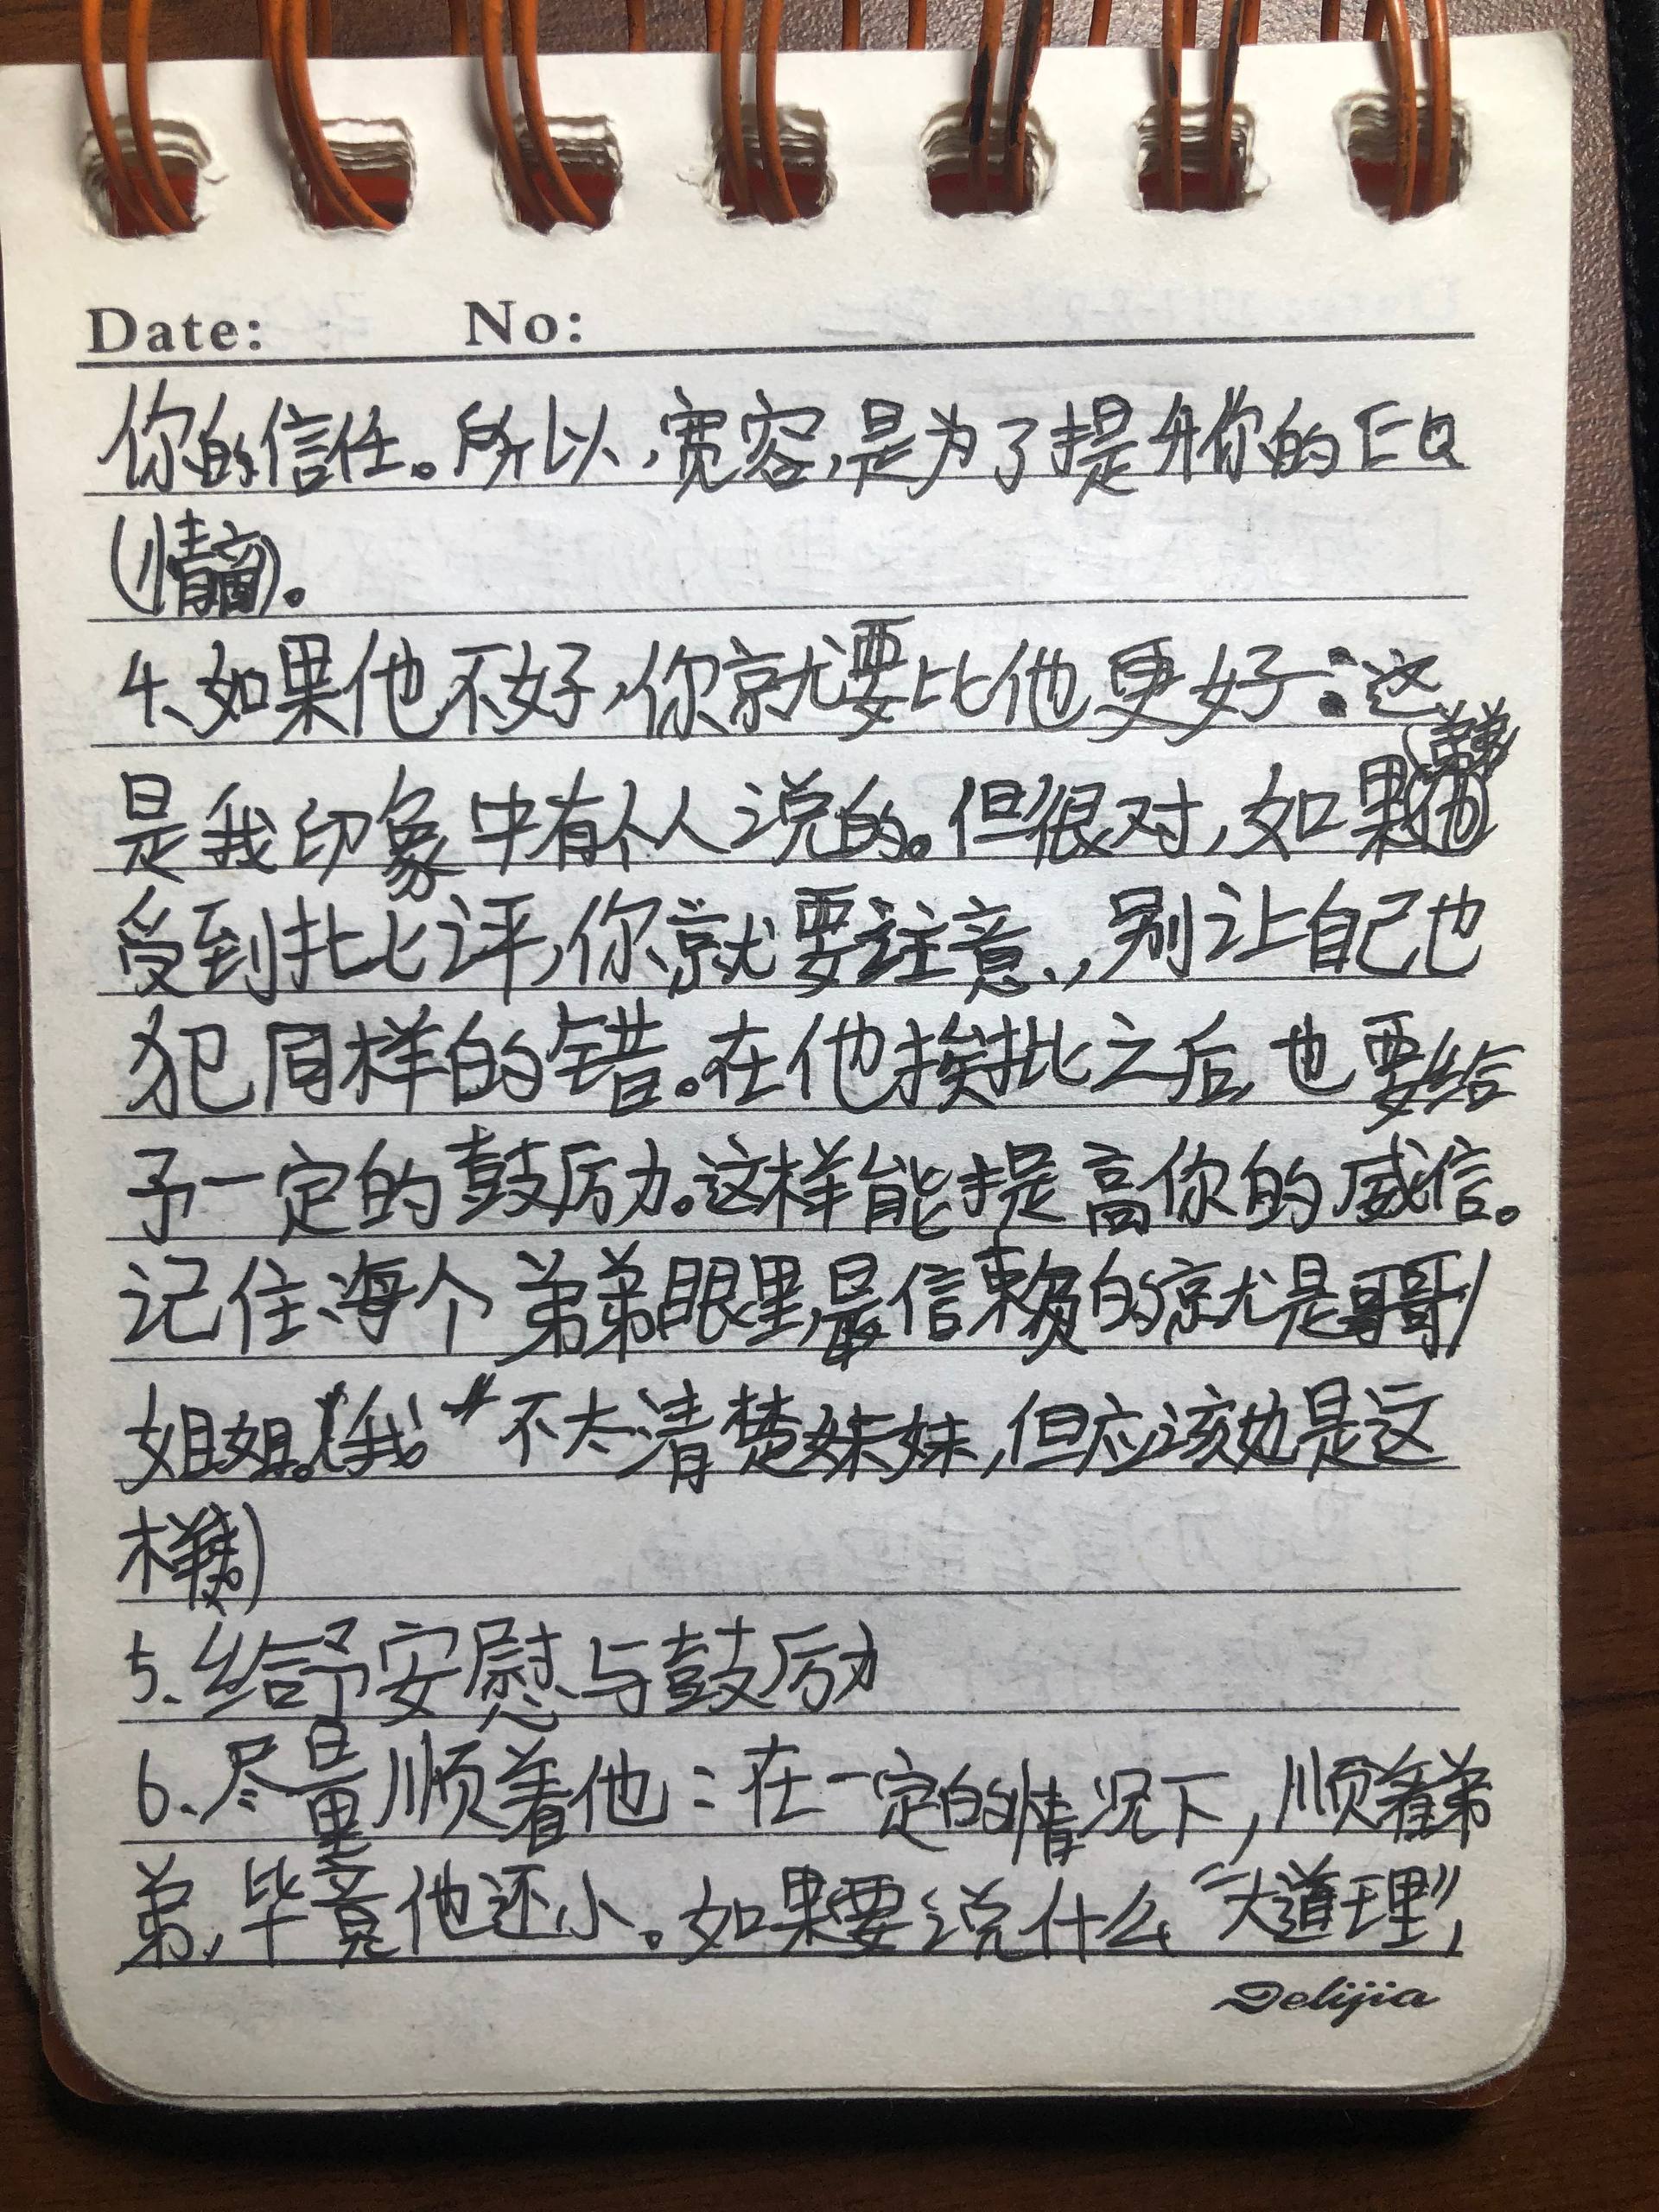 Date: No:
你的信任。所以,宽容,是为了提升你的EQ
(情商)。
4、如果他不好,你就要比他更好:这
是我印象中有个人说的。但很对,如果他(弟弟)
受到批评,你就要注意,别让自己也
犯同样的错。在他挨批之后,也要给
予一定的鼓励。这样能提高你的威信。
记住,每个弟弟眼里,最信赖的就是哥哥/
姐姐。(“我”不太清楚妹妹,但应该也是这
样)
5、给予安慰与鼓励
6、尽量顺着他:在一定的情况下,顺着弟
弟,毕竟他还小。如果要说什么“大道理”,
Delijia